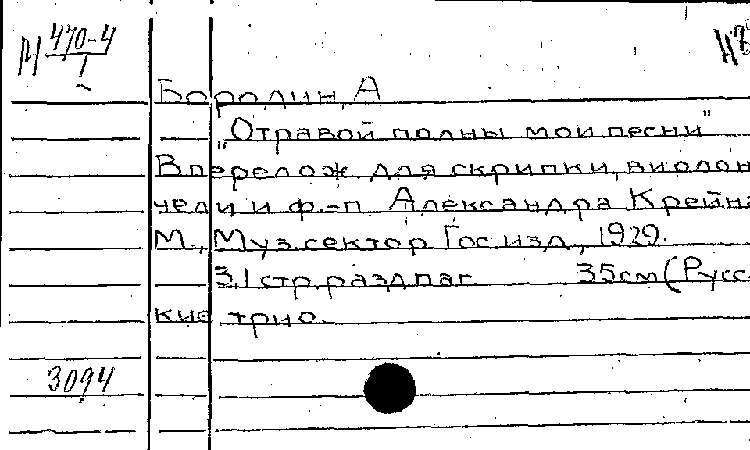 М 470-4
1
Бородин, А
„Отравой полны мои песни"
В перелож для скрипки, виолон
чели и ф.-п Александра Крейна
М., Муз.сектор Госизд., 1929.
3,1 стр. раздпаг 35см (Русс
кие трио.
3094